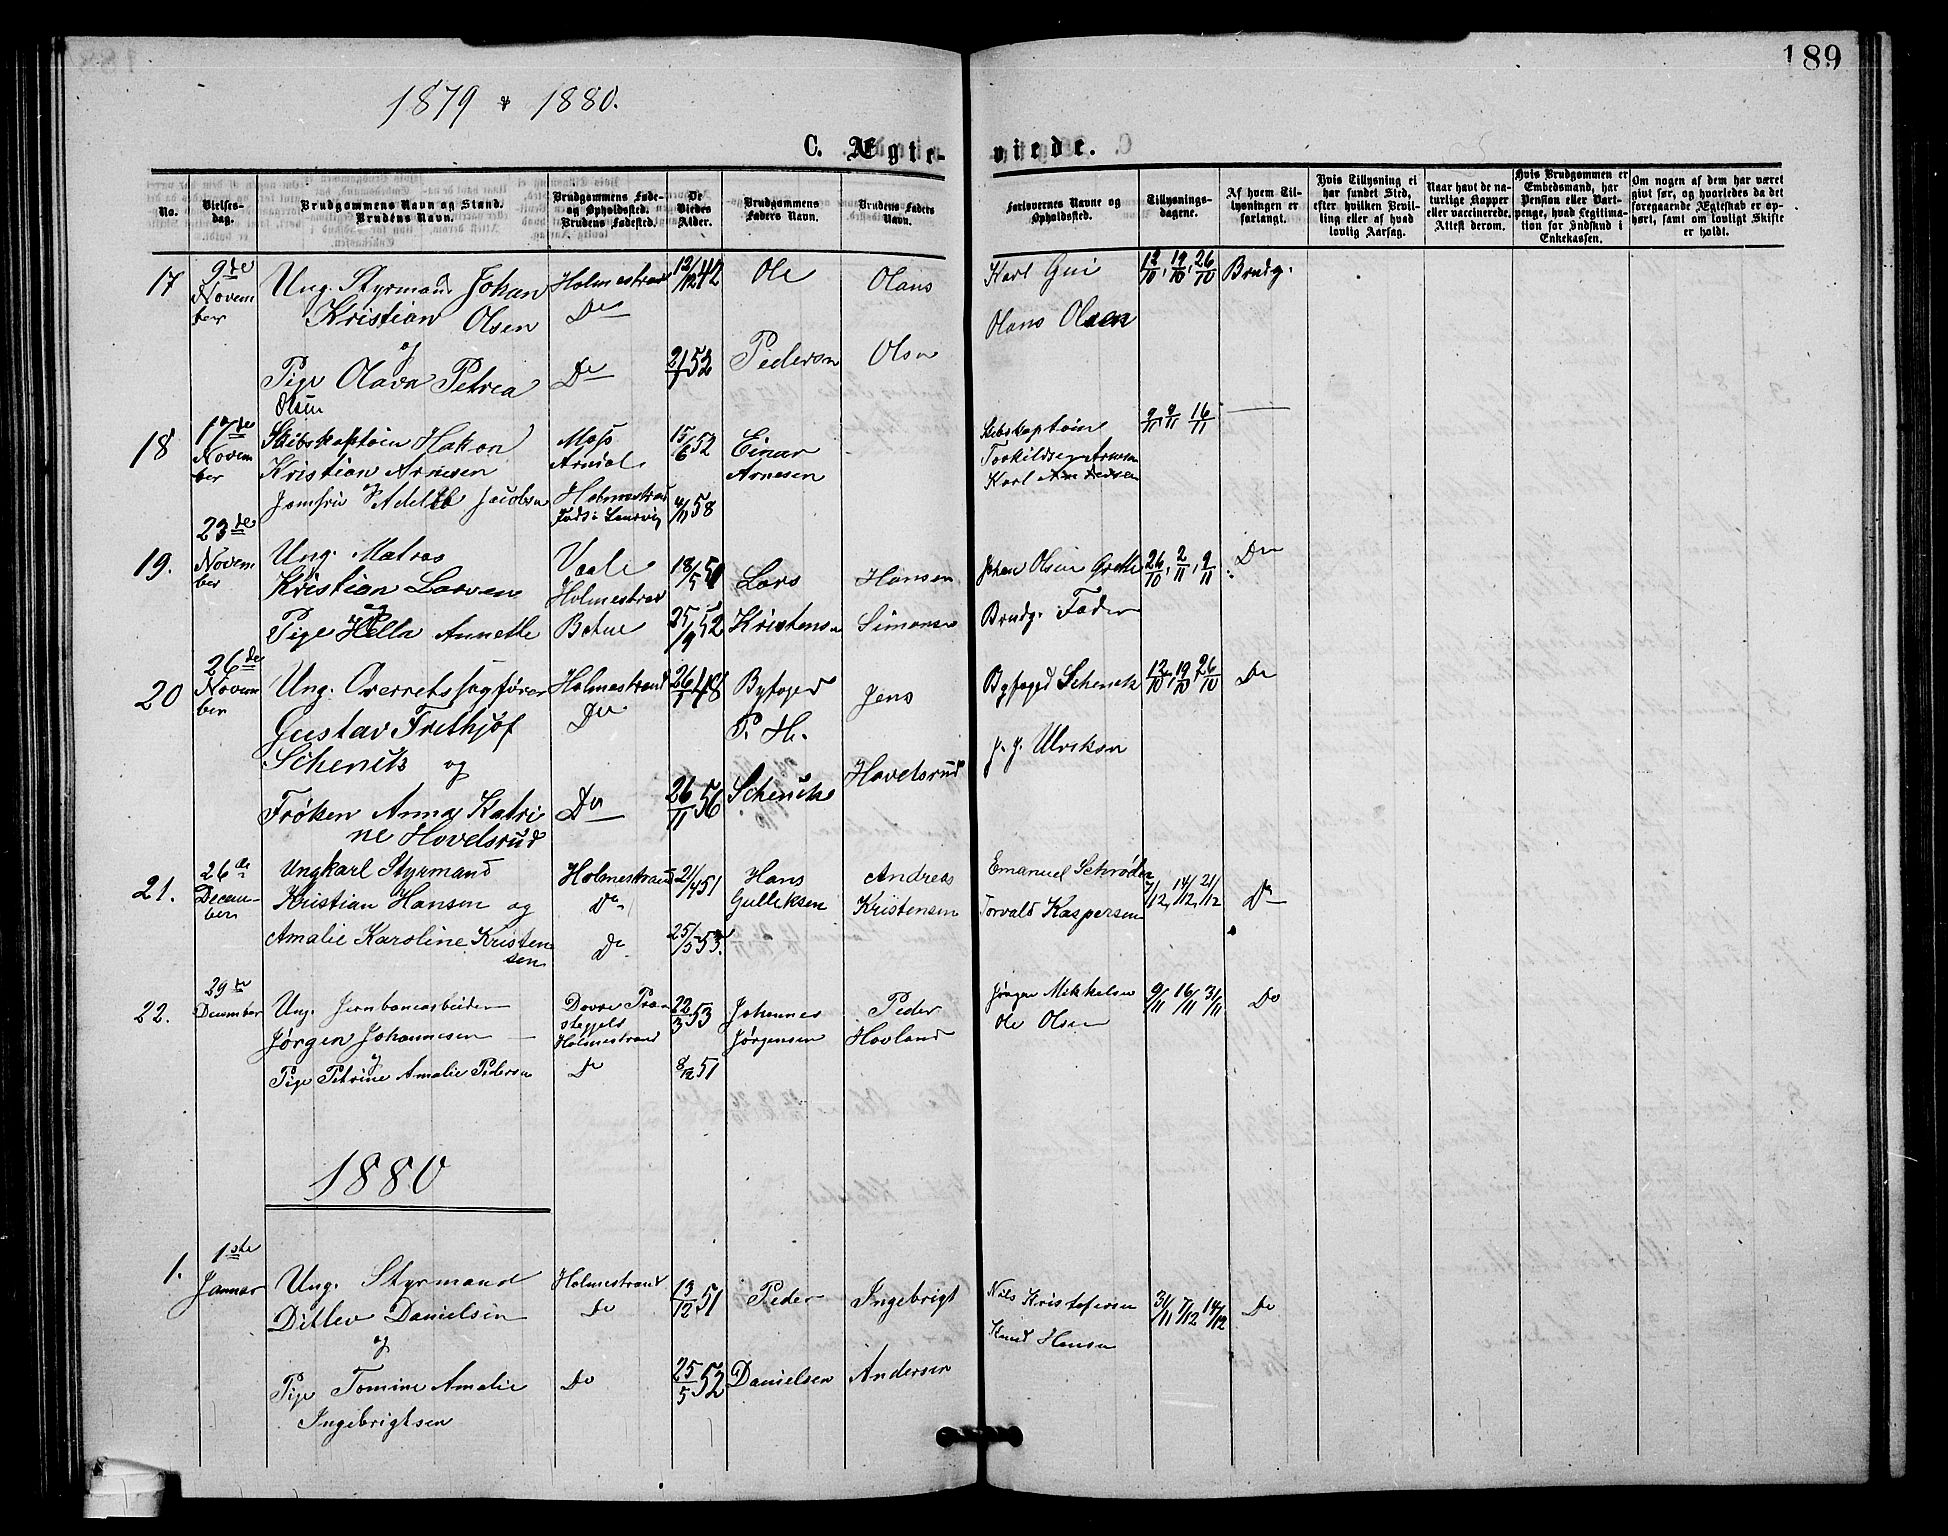 189
1879 & 1880.
C. Ægte-
viede.
No.
Vielses-
dag.
Brudgommens Navn og Stand.
Brudens Navn.
Brudgommens Føde-
og Opholdssted.
Brudens Fødested.
De
Viedes
Alder.
Brudgommens
Faders Navn.
Brudens Faders
Navn.
Forlovernes Navne og
Opholdssted.
Tillysnings-
dagene.
Af hvem Til-
lysningen er
forlangt.
Hvis Tillysning ei
har fundet Sted,
efter hvilken Bevil-
ling eller af hvad
lovlig Aarsag.
Naar havt de na-
turlige Kopper
eller vaccinerede.
Attest derom.
Hvis Brudgommen er
Embedsmand, har
Pension eller Vart-
penge, hvad Legitima-
tion for Indskud i
Enkekassen.
Om nogen af dem har været
givt før, og hvorledes da det
foregaaende Ægteskab er op-
hørt, samt om lovligt Skifte
er holdt.
17
9de
Novem
ber
Ung. Styrmand Johan
Kristian Olsen
og
Pige Olava Petrea
Olsen
Holmestrand
Do
Do
12/12 42
2/7 52
Ole
Pedersen
Olaus
Olsen
Karl Gui
Olaus Olsen
12/10, 19/10, 26/10
Brudg.
18
17de
Novem
ber
Skibskaptein Hakon
Kristian Arnesen
Jomfru Adele Jacobsen
Moss
Arndal
Holmestrand
Føds i Laurvig
15/6 52
4/11 58
Einar
Arnesen
Skibskaptein
Torkildsen Arnesen
Karl Andersen
2/11 9/11 16/11
19.
23de
Novem
ber
Ung. Matros
Kristian Larsen
og
Pige Hella Annette
Vaale
Holmestrand
Botne
18/5 51
25/9 52
Lars
Kristensen
Hansen
Simonsen
Johan Olsen Grette
Brudg. Fader
26/10, 2/11, 9/11
Do
20
26de
Novem
ber
Ung. Overretssagfører
Gustav Frithjof
Schenck og
Frøken Anna Katri
ne Hovelsrud
Holmestrand
Do
Do
26/1 48
26/11 56
Byfoged
P. H.
Schenck
Jens
Hovelsrud
Byfoged Schenck
J. J. Ulriksen
12/10, 19/10, 26/10
Do
21.
26de
Decem-
ber
Ungkarl Styrmand
Kristian Hansen og
Amalie Karoline Kristen
sen
Holmestrand
Do
Do
21/4 51
25/5 53.
Hans
Gulliksen
Andreas
Kristensen
Emanuel Schrøder
Torvald Kaspersen
7/12, 14/12 21/12
Do
22.
29de
December
Ung. Jernbanearbeider
Jørgen Johannesen
og
Pige Petrine Amalie Pedersen
Dovre Præ
stegjeld
Holmestrand
Do
22/3 53
8/12 51
Johannes
Jørgensen
Peder
Hovland
Jørgen Mikkelsen
Ole Olsen
9/11 16/11 31/11
Do
1880
1.
1ste
Januar
Ung. Styrmand
Ditlev Danielsen
og
Pige Tomine Amalie
Ingebrigtsen
Holmestrand
Do
Do
13/12 51
25/5 52
Peder
Danielsen
Ingebrigt
Andersen
Nils Kristofersen
Knud Hansen
31/11 7/12 14/12
Do